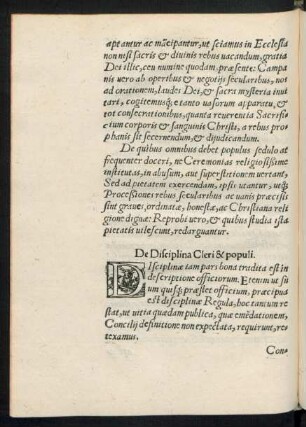 aptantur ac mũcipantur, ut sciamus in Ecclesia
non nisi sacris & diuinis rebus uacandum, gratia
Dei illic, ceu numine quodam, præsente: Campa
nis uero ab operibus & negotijs secularibus, nos
ad orationem, laudes Dei, & sacra mysteria inui
tari, cogitemusq; e tanto uasorum apparatu, &
tot consecrationibus, quanta reuerentia Sacrifi
cium corporis & sanguinis Christi, a rebus pro
phanis sit secernendum, & dijudicandum.
De quibus omnibus debet populus sedulo at
frequenter doceri, ne Ceremonias religiosissime
institutas, in abusum, aut superstitionem uertant,
Sed ad pietatem exercendam, ipsis utantur, utq;
Processiones rebus secularibus ac uanis præcisis
sint graues, ordinatæ, honestæ, ac Christiana reli
gione dignæ: Reprobi uero, & quibus studia ista
pietatis uilescunt, redarguantur.
De Disciplina Cleri & populi.
DIsciplinæ tam pars bona tradita est in
descriptione officiorum. Etenim ut su
um quisq; præstet officium, præcipua
est disciplinæ Regula, hoc tantum re
stat, ut uitia quædam publica, quæ emẽdationem,
Concilij definitione non expectata, requirunt, re
texamus.
Con-